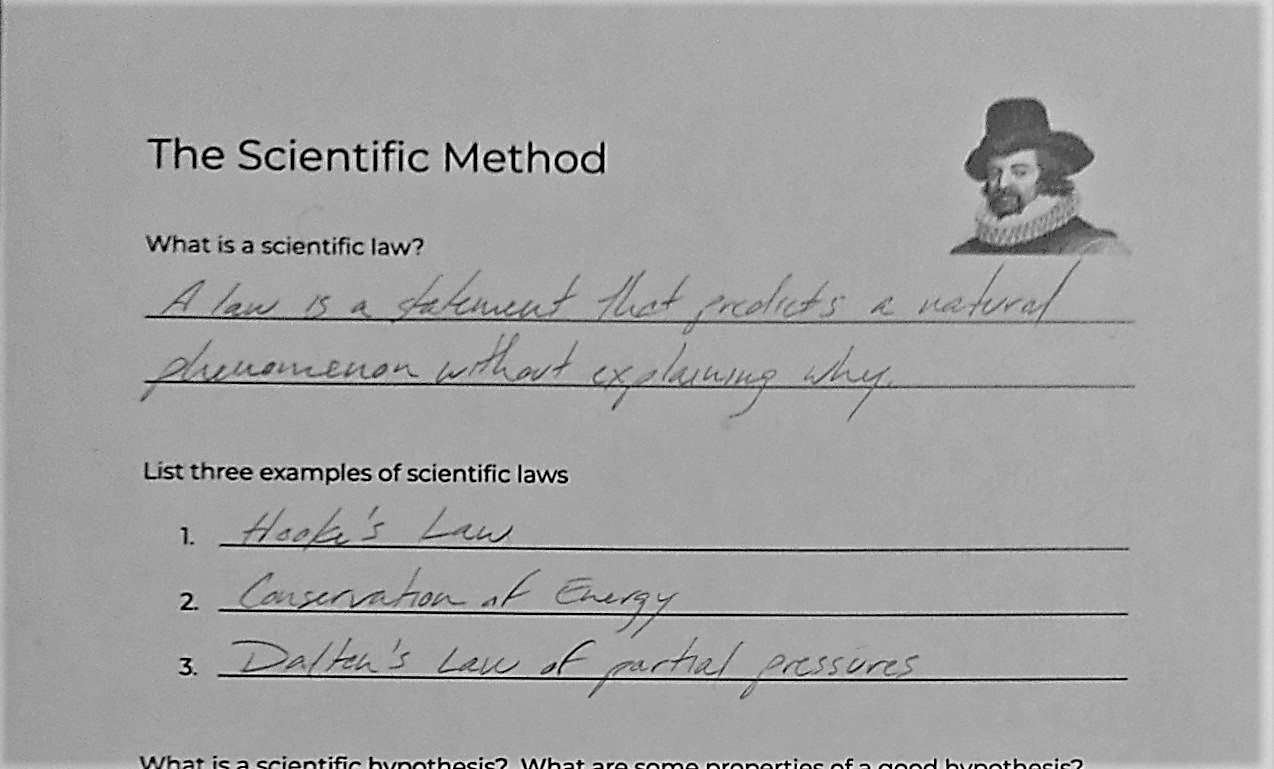 The Scientific Method
What is a scientific law?
A law is a statement that predicts a natural
phenomenon without explaining why.
List three examples of scientific laws
1. Hooke's Law
2. Conservation of Energy
3. Dalton's Law of partial pressures
What is a scientific hypothesis? What are some properties of a good hypothesis?